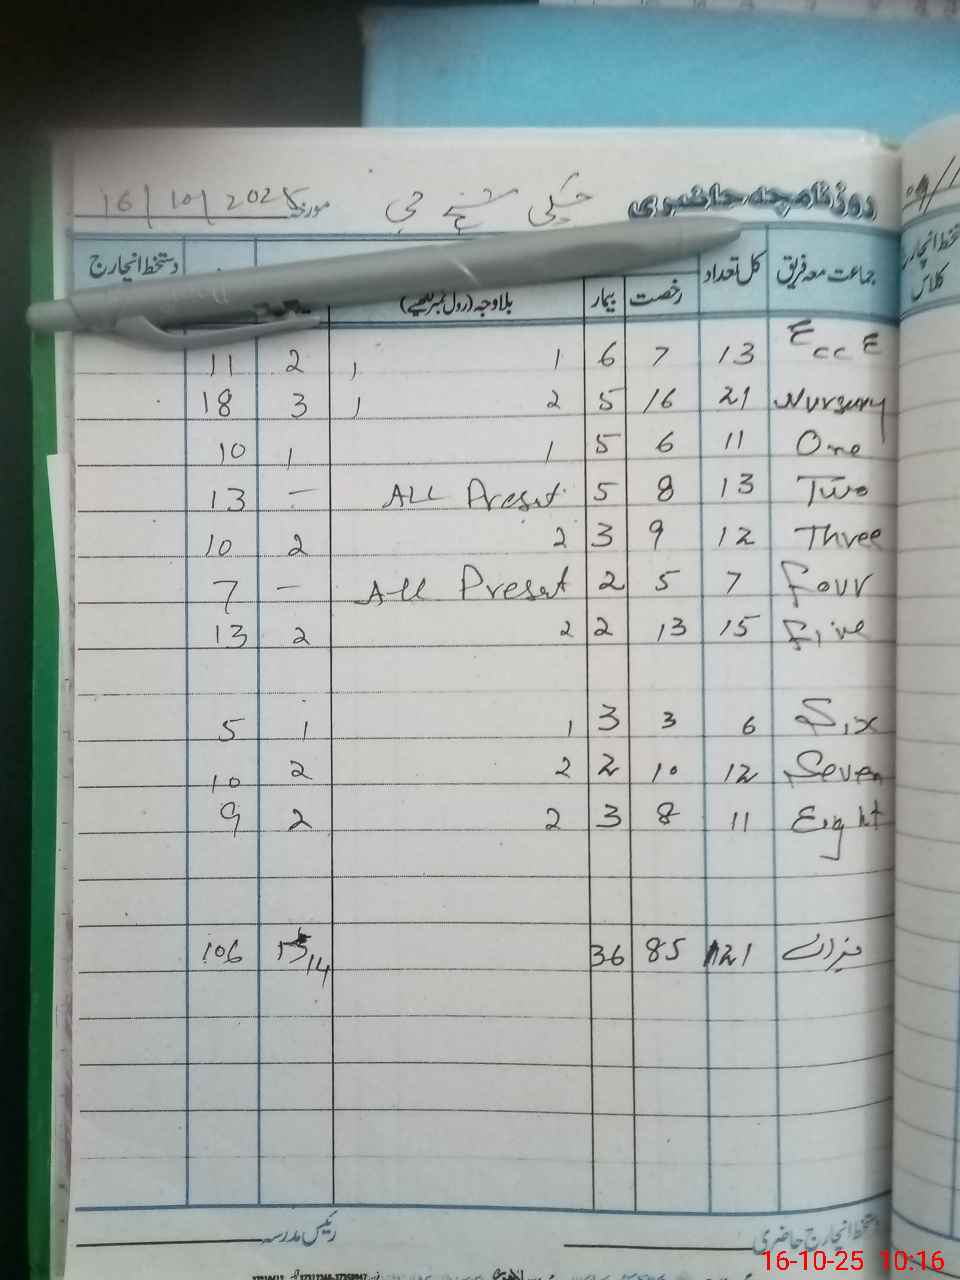 روزنامچہ حاضری
مورخہ 16/10/2025
جماعت معہ فریق کل تعداد رخصت بیمار بلاوجہ (رول نمبر لکھیے) دستخط انچارج
ECCE 13 7 6 1 1 2 11
Nursury 21 16 5 2 1 3 18
One 11 6 5 1 1 10
Two 13 8 5 ALL Preset - 13
Three 12 9 3 2 2 10
Four 7 5 2 All Preset - 7
Five 15 13 2 2 2 13
Six 6 3 3 1 1 5
Seven 12 10 2 2 2 10
Eight 11 8 3 2 2 9
میزان 121 85 36 14 106
دستخط انچارج حاضری رئیس مدرسہ
دستخط انچارج
کلاس
16-10-25 10:16